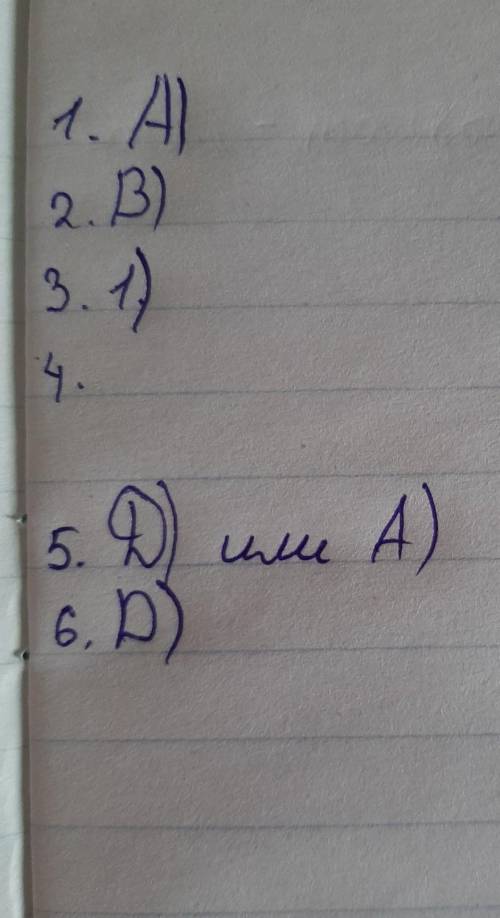 1. A)
2. B)
3. 1)
4.
5. D) или A)
6. D)